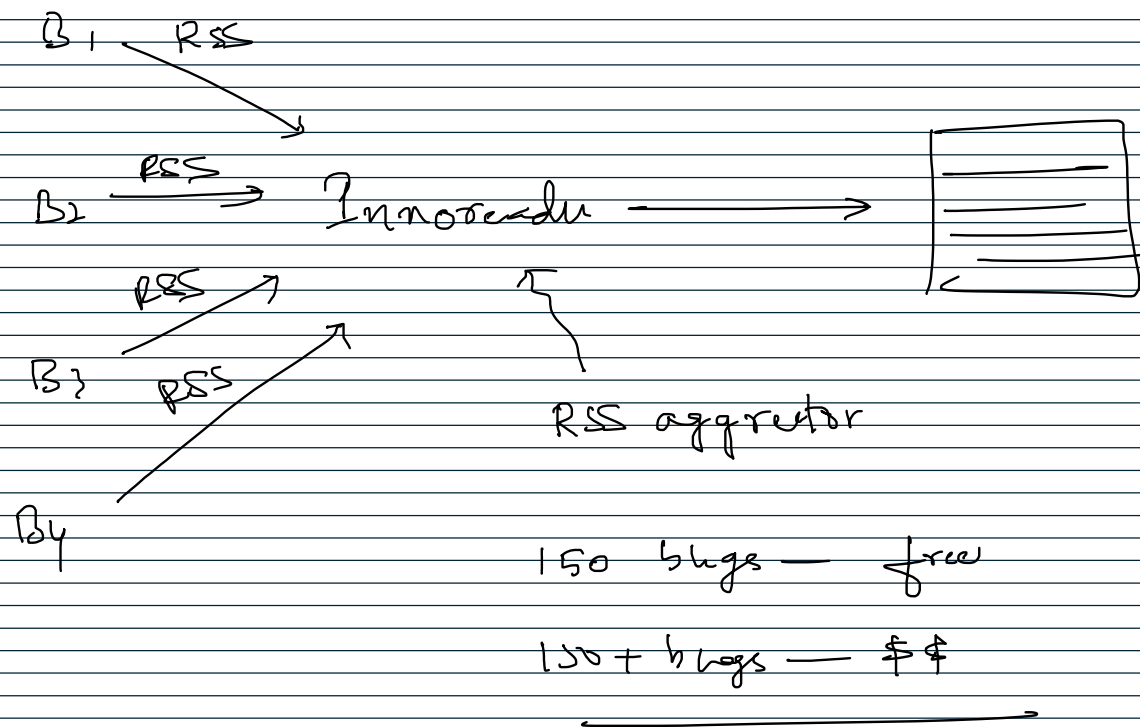 B1 RSS
RSS
B2 Innoreadu
RSS
B3
RSS
RSS aggretor
B4
150 blogs — free
150+ blogs — $$